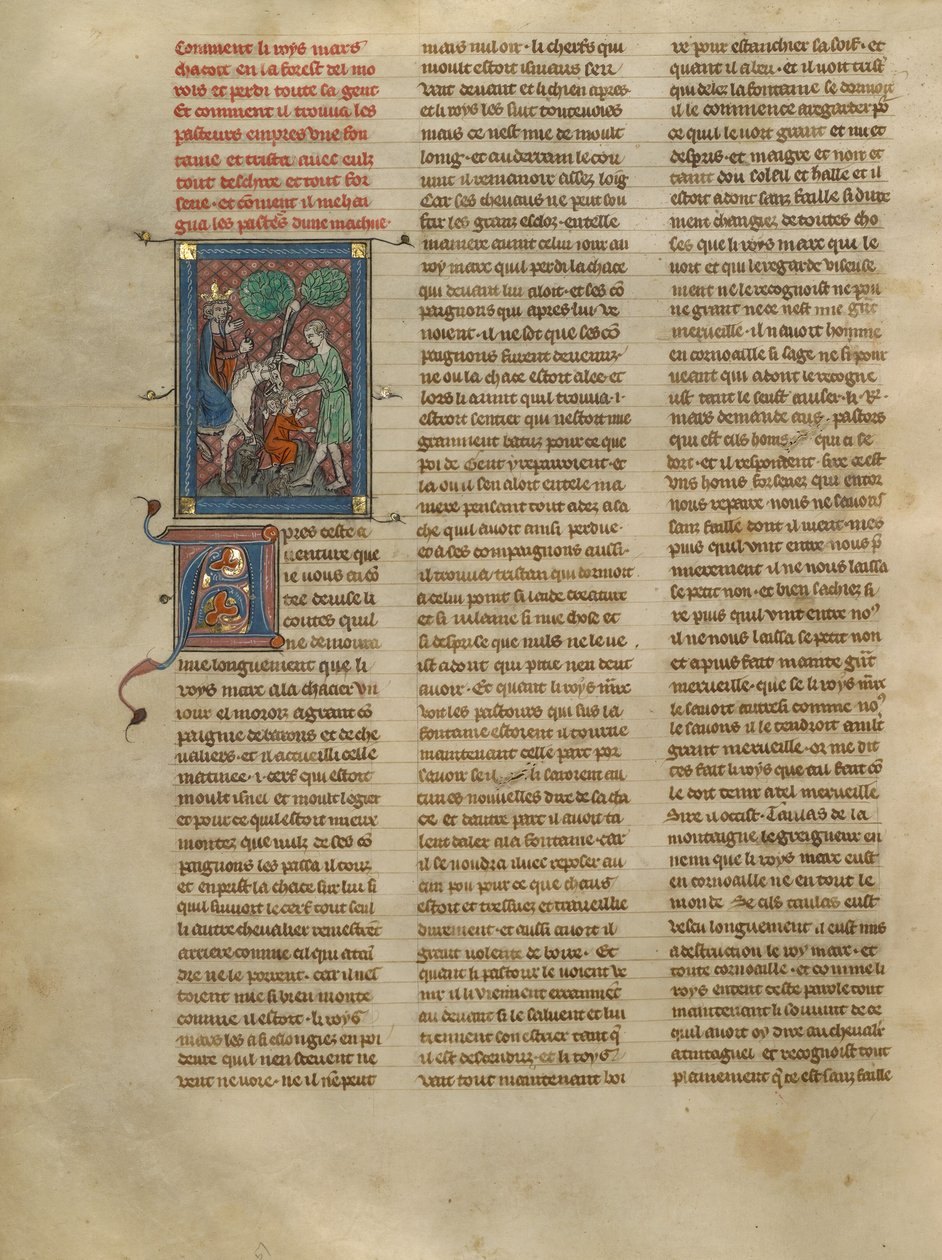 Comment li roys mars
chacoit en la forest del mo
rois et perdi toute sa gent
Et comment il trouua les
pasteurs empres vne fon
taine et trista auec eulz
tout deschire et tout for
sene et coment il mehai
gna les pastes dune machue
pres ceste a
uenture que
ie vous ai co
tee deuise li
contes quil
ne demoura
mie longuement que li
roys marc ala chacier vn
iour el morois a grant co
paignie de barons et de che
ualiers et il acueilli celle
matinee i cerf qui estoit
moult isnel et moult legier
et pour ce quil estoit mieux
montez que nulz de ses co
paignons les passa il touz
et enprist la chace sur lui si
quil suiuoit le cerf tout seul
li autre cheualier remestrent
arriere comme cil qui atai
dre ne le porent car il nes
toient mie si bien monte
comme il estoit li roys
mars les a si eslongiez en poi
deure quil nen sceuent ne
vent ne voie ne il ne peut
mais nul oir li cherfs qui
moult estoit isniaus sen
vait deuant et li chien apres
et li roys les suit touteuoies
mais ce nest mie de moult
loing et au derrain le cou
uint il remanoir assez loig
Car ses cheuaus ne peut sou
frir les granz esclos en telle
maniere auint celui iour au
roy marc quil perdi la chace
qui deuant lui aloit et ses co
paignons qui apres lui ve
noient il ne sot que ses co
paignons furent deuenuz
ne ou la chace estoit alee et
lors li auint quil trouua i
estroit sentier qui nestoit mie
granment batuz pour ce que
poi de Gent y repairoient et
la ou il sen aloit en tele ma
niere pensant tout adez a sa
che quil auoit ainsi perdue
et a ses compaignons aussi
il trouua tristan qui dormoit
a celui point si laide creature
et si vilainne si nue chose et
si desprise que nuls ne le ve
ist adont qui pitie nen deut
auoir Et quant li roys marc
voit les pastours qui sus la
fontaine estoient il tourne
maintenant celle part por
sauoir sen li saroient au
cunes nouuelles dire de sa cha
ce et dautre part il auoit ta
lent daler a la fontaine car
il se voudra iluec reposer au
cun pou pour ce que chaus
estoit et tressuez et traueillie
durement et aussi auoit il
grant volente de boire Et
quant li pastour le voient ve
nir il li viennent erranment
au deuant si le saluent et lui
tiennent son estrier tant q
il est descenduz et li roys
vait tout maintenant boi
re pour estanchier sa soif et
quant il a beu et il voit trist
qui delez la fontaine se dormoit
il le commence a regarder por
ce quil le voit grant et nu et
despris et maigre et noir et
taint dou soleil et halle et il
estoit adont sanz faille si dure
ment changiez de toutes cho
ses que li roys marc qui le
voit et qui le regarde viseuse
ment ne le recognoist ne pou
ne grant ne ce nest mie grant
merueille il nauoit homme
en cornoaille si sage ne si pour
ueant qui adont le recogne
ust tant le seust auiser li R
mars demande aus pastors
qui est cils homs qui ci se
dort et il respondent sire cest
vns homs forsenez qui entor
nous repaire nous ne sauons
sanz faille dont il vient mes
puis quil vint entre nous p
mierement il ne nous laissa
se petit non et bien sachiez si
re puis quil vint entre nos
il ne nous laissa se petit non
et a puis fait mainte grant
merueille que se li roys marc
le sauoit autresi comme nos
le sauons il le tendroit a mlt
grant merueille or me dit
tes fait li roys que tu fait co
le doit tenir a tel merueille
Sire il occist Taulas de la
montaigne le greigneur en
nemi que li roys marc eust
en cornoaille ne en tout le
monde Se cils taulas eust
vescu longuement il eust mis
a destruction le roy marc et
toute cornoaille et comme li
roys entent ceste parole tout
maintenant li souuint de ce
quil auoit oy dire au cheualier
a tintaguel et recognoist tout
plainement q ce est sanz faille